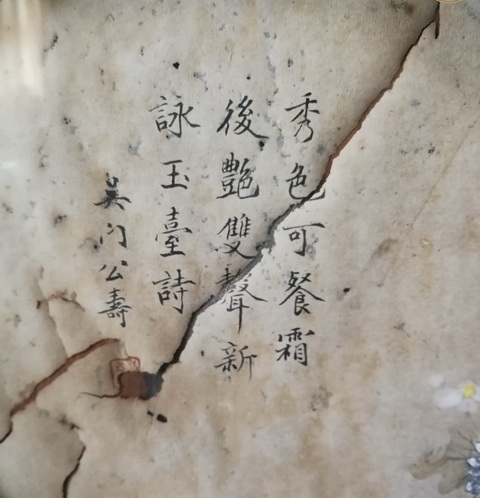 秀色可餐霜
後艷雙聲新
詠玉臺詩
吳门公壽